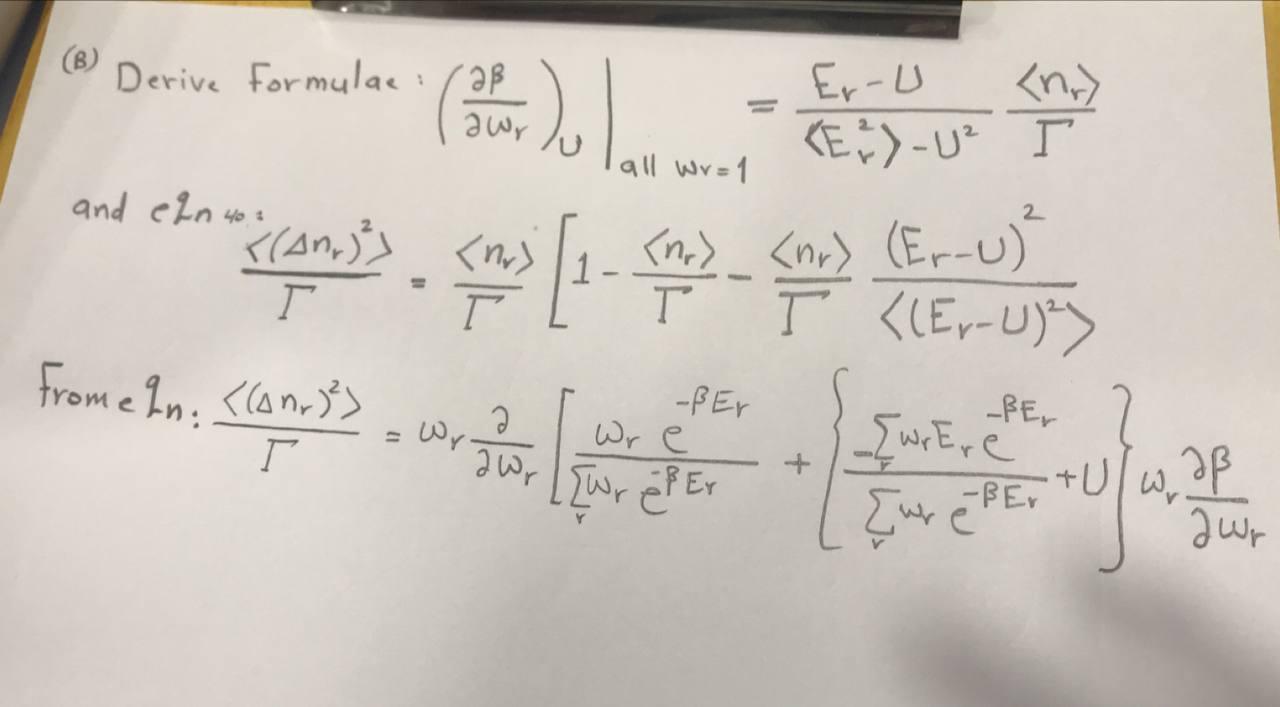 (B) Derive Formulae : (∂β/∂ωr)U |all wr=1 = (Er-U)/(<Er²>-U²) <nr>/Γ
and eqn 40: <(Δnr)²>/Γ = <nr>/Γ [1 - <nr>/Γ - <nr>/Γ (Er-U)²/<(Er-U)²>
From eqn: <(Δnr)²>/Γ = ωr ∂/∂ωr [ωr e^{-βEr}/Σr ωr e^{-βEr} + {-Σr ωr Er e^{-βEr}/Σr ωr e^{-βEr} + U} ωr ∂β/∂ωr